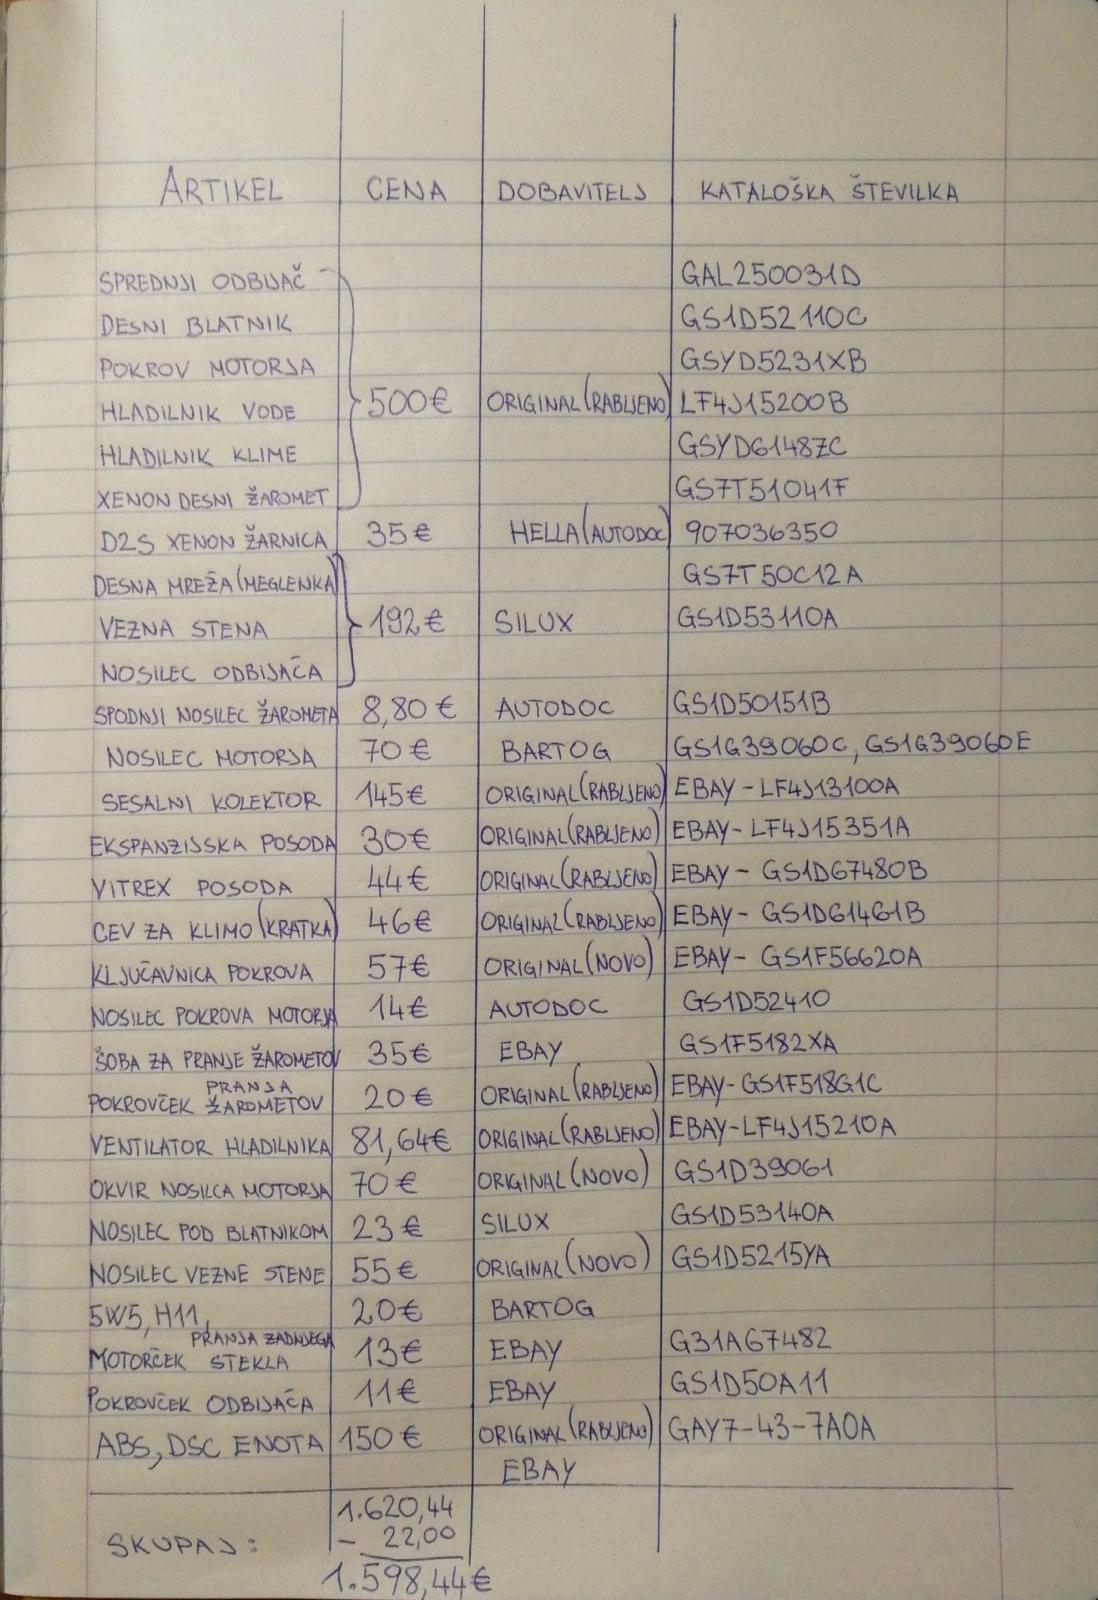 ARTIKEL CENA DOBAVITELJ KATALOŠKA ŠTEVILKA
SPREDNJI ODBIJAČ GAL250031D
DESNI BLATNIK GS1D52110C
POKROV MOTORJA GSYD5231XB
HLADILNIK VODE 500€ ORIGINAL(RABLJENO) LF4J15200B
HLADILNIK KLIME GSYD6148ZC
XENON DESNI ŽAROMET GS7T51041F
D2S XENON ŽARNICA 35€ HELLA(AUTODOC) 907036350
DESNA MREŽA(MEGLENKA) GS7T50C12A
VEZNA STENA 192€ SILUX GS1D53110A
NOSILEC ODBIJAČA
SPODNJI NOSILEC ŽAROMETA 8,80€ AUTODOC GS1D50151B
NOSILEC MOTORJA 70€ BARTOG GS1G39060C, GS1G39060E
SESALNI KOLEKTOR 145€ ORIGINAL(RABLJENO) EBAY-LF4J13100A
EKSPANZIJSKA POSODA 30€ ORIGINAL(RABLJENO) EBAY-LF4J15351A
VITREX POSODA 44€ ORIGINAL(RABLJENO) EBAY-GS1D67480B
CEV ZA KLIMO(KRATKA) 46€ ORIGINAL(RABLJENO) EBAY-GS1D61461B
KLJUČAVNICA POKROVA 57€ ORIGINAL(NOVO) EBAY-GS1F56620A
NOSILEC POKROVA MOTORJA 14€ AUTODOC GS1D52410
ŠOBA ZA PRANJE ŽAROMETOV 35€ EBAY GS1F5182XA
PRANJA
POKROVČEK ŽAROMETOV 20€ ORIGINAL(RABLJENO) EBAY-GS1F518G1C
VENTILATOR HLADILNIKA 81,64€ ORIGINAL(RABLJENO) EBAY-LF4J15210A
OKVIR NOSILCA MOTORJA 70€ ORIGINAL(NOVO) GS1D39061
NOSILEC POD BLATNIKOM 23€ SILUX GS1D53140A
NOSILEC VEZNE STENE 55€ ORIGINAL(NOVO) GS1D5215YA
5W5, H11, 20€ BARTOG
PRANJA ZADNJEGA
MOTORČEK STEKLA 13€ EBAY G31A67482
POKROVČEK ODBIJAČA 11€ EBAY GS1D50A11
ABS, DSC ENOTA 150€ ORIGINAL(RABLJENO) GAY7-43-7A0A
EBAY
1.620,44
SKUPAJ: - 22,00
1.598,44€